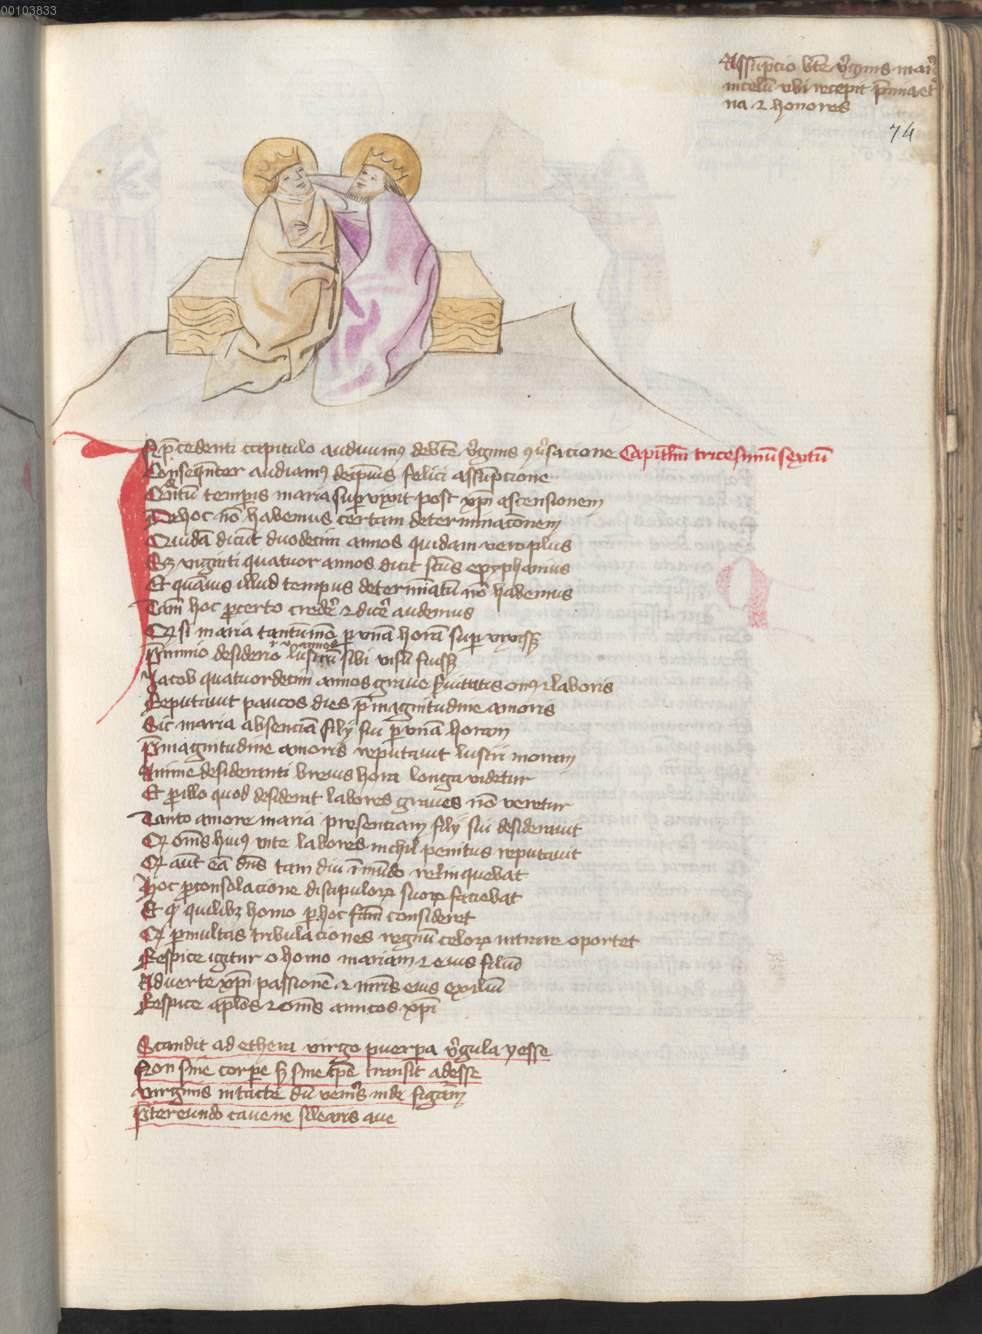 00103833
Assu̅pcio bt̅e vͥginis marͥ
in celu̅ vbi recepit p̅mia et̕
na ⁊ honores
74
In p̅cedenti capitulo audiuimꝰ de bt̅e vͥginis ꝯu̕sacione Capitlm̅ tricesimu̅ sextu̅
Conseque̅ter audiamꝰ de ipsius felici assu̅pcione
Qua̅tu̅ tempus maria superuixit post xp̅i ascensionem
De hoc no̅ habemus certam determinaco̅nem
Quida̅ dicu̅t duodecim annos quidam vero plus
Sꝫ viginti quatuor annos dicit sc̅us epyphanius
Et qua̅uis illud tempus determi̅atu̅ no̅ habemus
Tam̅ hoc ꝓ certo crede̕ ⁊ dice̕ audemus
Qꝫ si maria tantu̅mo̅ ꝑ vna̅ hora̅ superuixissꝫ
P̅ nimio desiderio lustru̅ sibi visu̅ fuissꝫ
Iacob quatuordecim annos graue s̕uitutis onꝰ ⁊ laboris
Reputauit paucos dies p̅ magnitudine amoris
Sic maria absencia̅ filij sui ꝑ vna̅ horam
P̅ magnitudine amoris reputauit lustri moram
Anime desideranti breuis hora longa videtur
Et ꝓ illo quod desiderat labores graues no̅ veretur
Tanto amore maria presentiam filij sui desiderauit
Qꝫ om̅s huiꝰ vite labores nichil penitus reputauit
Qꝫ aut̅ ea̅ dn̅s tam diu i̅ mu̅do relinquebat
Hoc ꝓ consolacione discipuloꝝ suoꝝ faciebat
Et qꝫ quilibꝫ homo ꝑ hoc fc̅m consideret
Qꝫ ꝑ multas tribulaciones regnu̅ celoꝝ intrare oportet
Respice igitur o homo mariam ⁊ eius filiu̅
Aduerte xp̅i passione̅ ⁊ mr̅is eius exiliu̅
Respice ap̅los ⁊ om̅s amicos xp̅i
Scandit ad ethera virgo puerpa vͥgula yesse
Non sine corpe sꝫ sine tp̅e transit adesse
Virginis intacte du̅ veneris ante figura̅
P̅tereundo caue ne sileatis aue